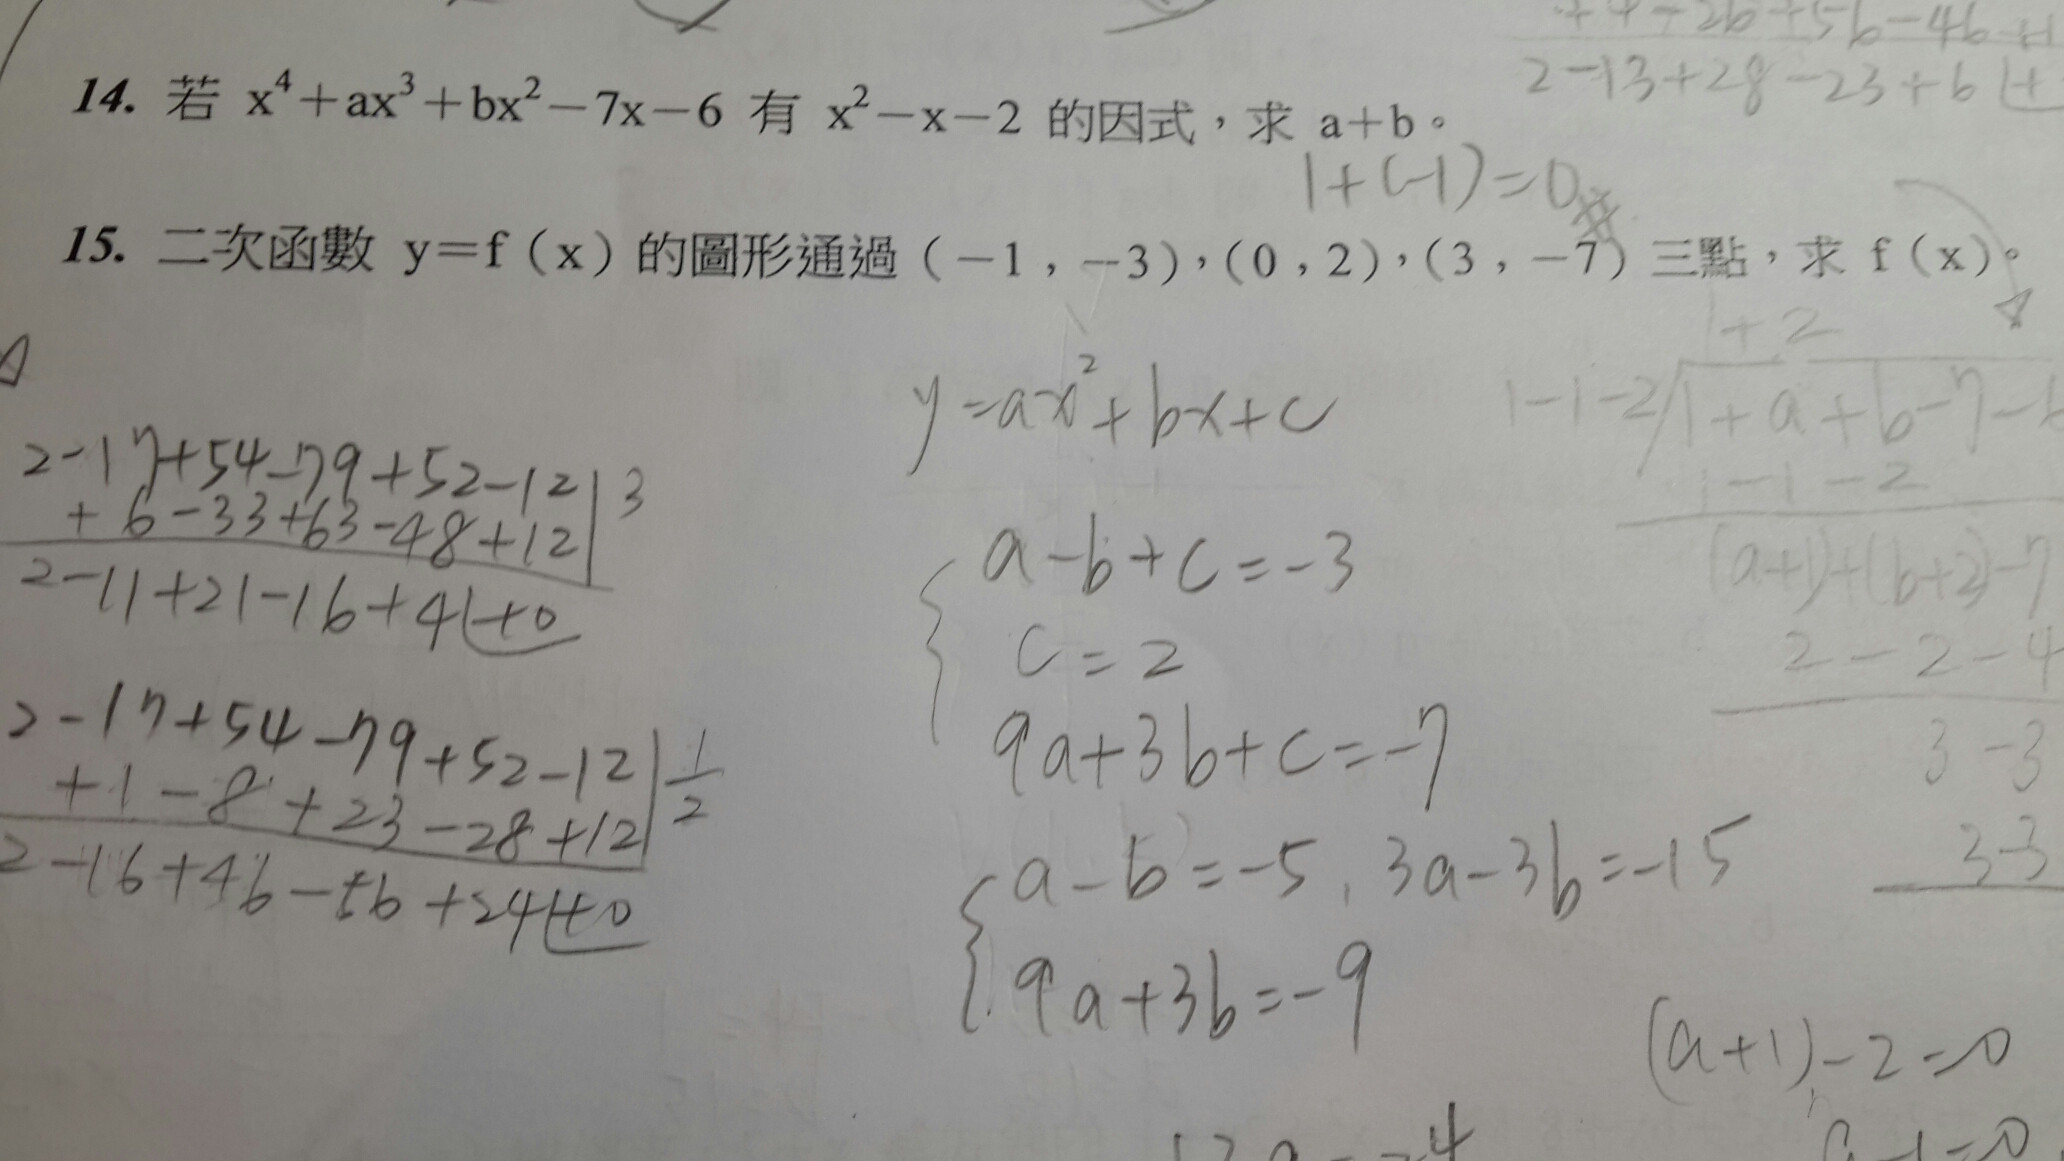 ++4-2b+5b-4b+1
2-13+28-23+6
14. 若 x⁴+ax³+bx²-7x-6 有 x²-x-2 的因式，求 a+b。
1+(-1)=0
15. 二次函數 y=f(x) 的圖形通過 (-1, -3), (0, 2), (3, -7) 三點，求 f(x)。
2-17+54-79+52-12|3
+6-33+63-48+12
2-11+21-16+4+0
2-17+54-79+52-12|1/2
+1-8+23-28+12
2-16+46-56+24+0
y=ax²+bx+c
a-b+c=-3
c=2
9a+3b+c=-7
a-b=-5, 3a-3b=-15
9a+3b=-9
1+2
1-1-2/1+a+b-7-6
1-1-2
(a+1)+(b+2)-7
2-2-4
3-3
3-3
(a+1)-2=0
a-1=0